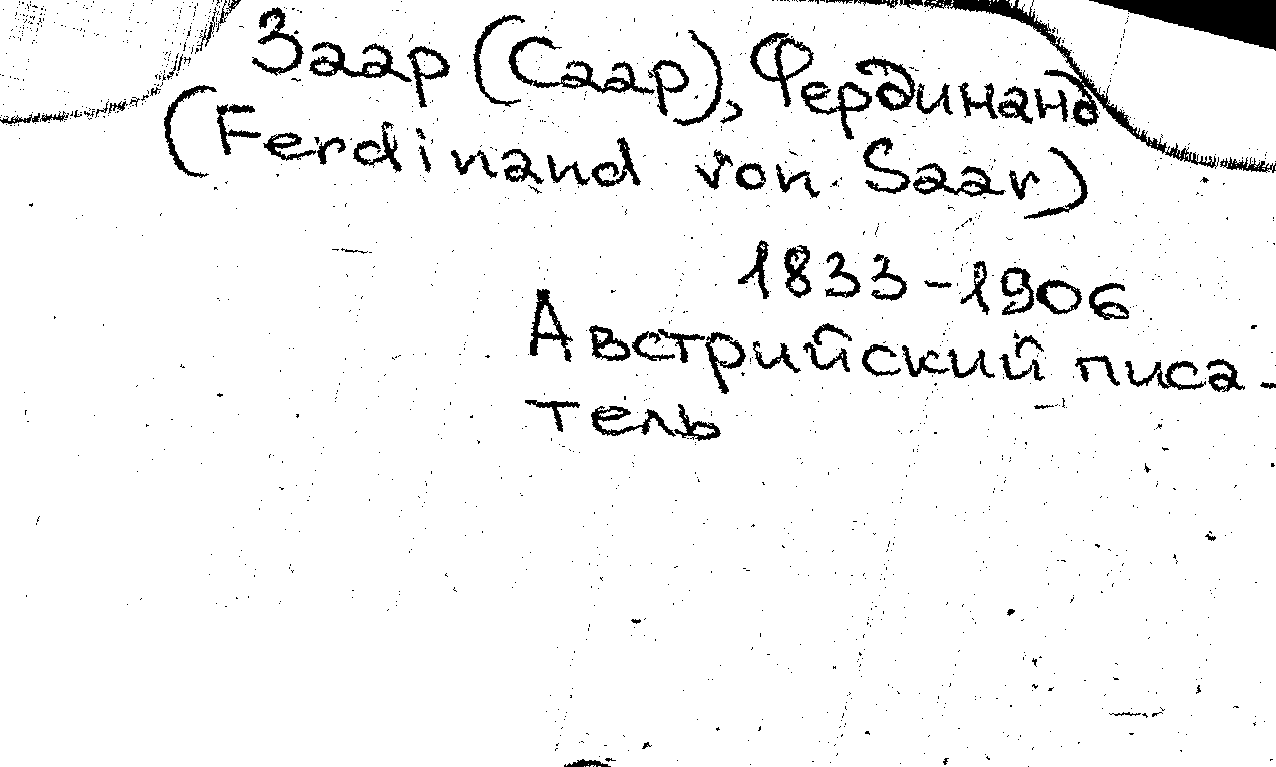 Заар (Саар), Фердинанд
(Ferdinand von Saar)
1833-1906
Австрийский писа-
тель